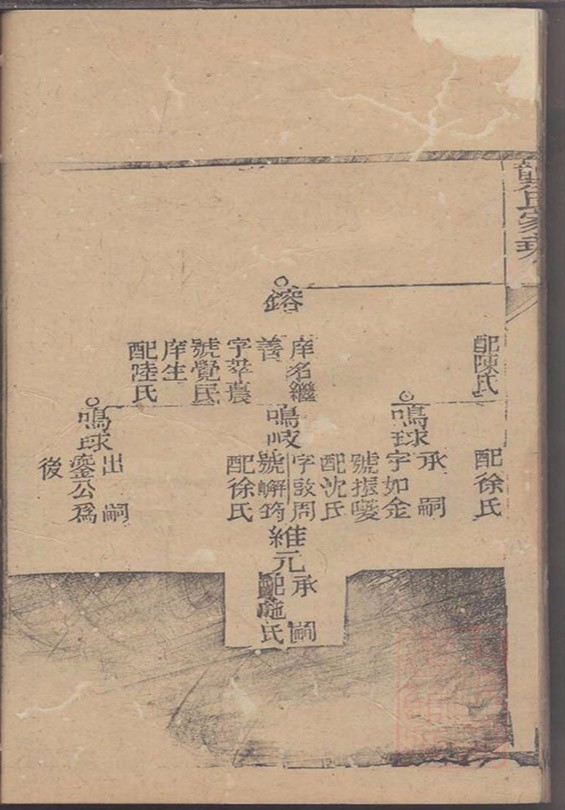 龔氏家乘
配陳氏
配徐氏
鳴球
承嗣
字如金
號振夔
配沈氏
鎔
庠名繼
善
字莘農
號覺民
庠生
配陸氏
鳴岐
字啟周
號嶰筠
配徐氏
維元
承嗣
配施氏
鳴球
出嗣
鑾公爲
後